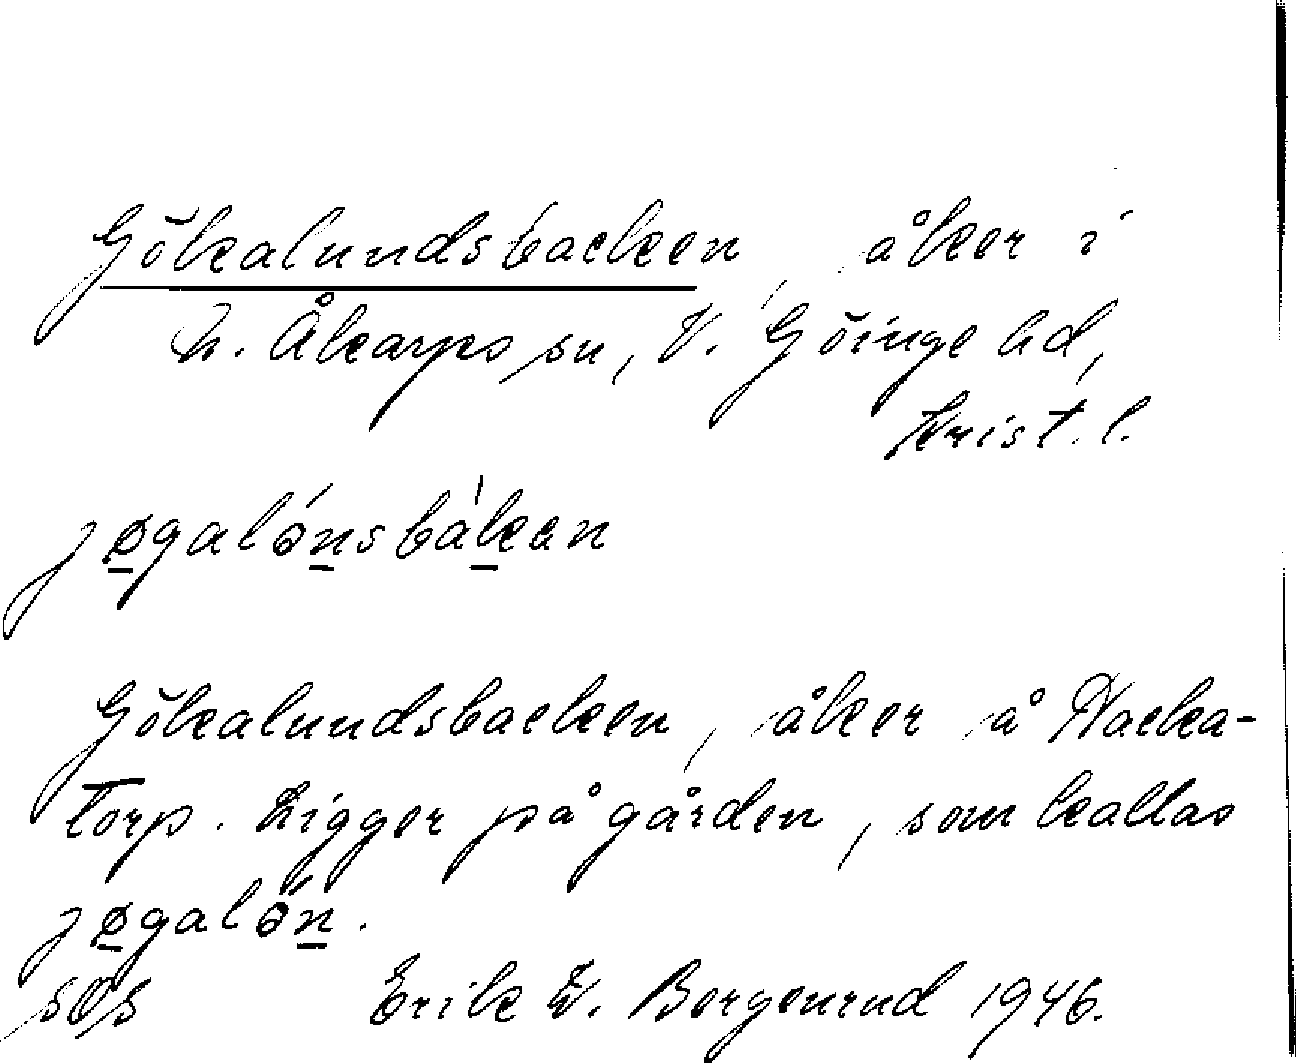 Gökalundsbacken, åker i
N. Åkarps sn, V. Göinge hd,
Krist. l.
jøgalónsbákan
Gökalundsbacken, åker å Nacka-
torp. Ligger på gården, som kallas
jøgalón.
Erik W. Bergenrud 1946.